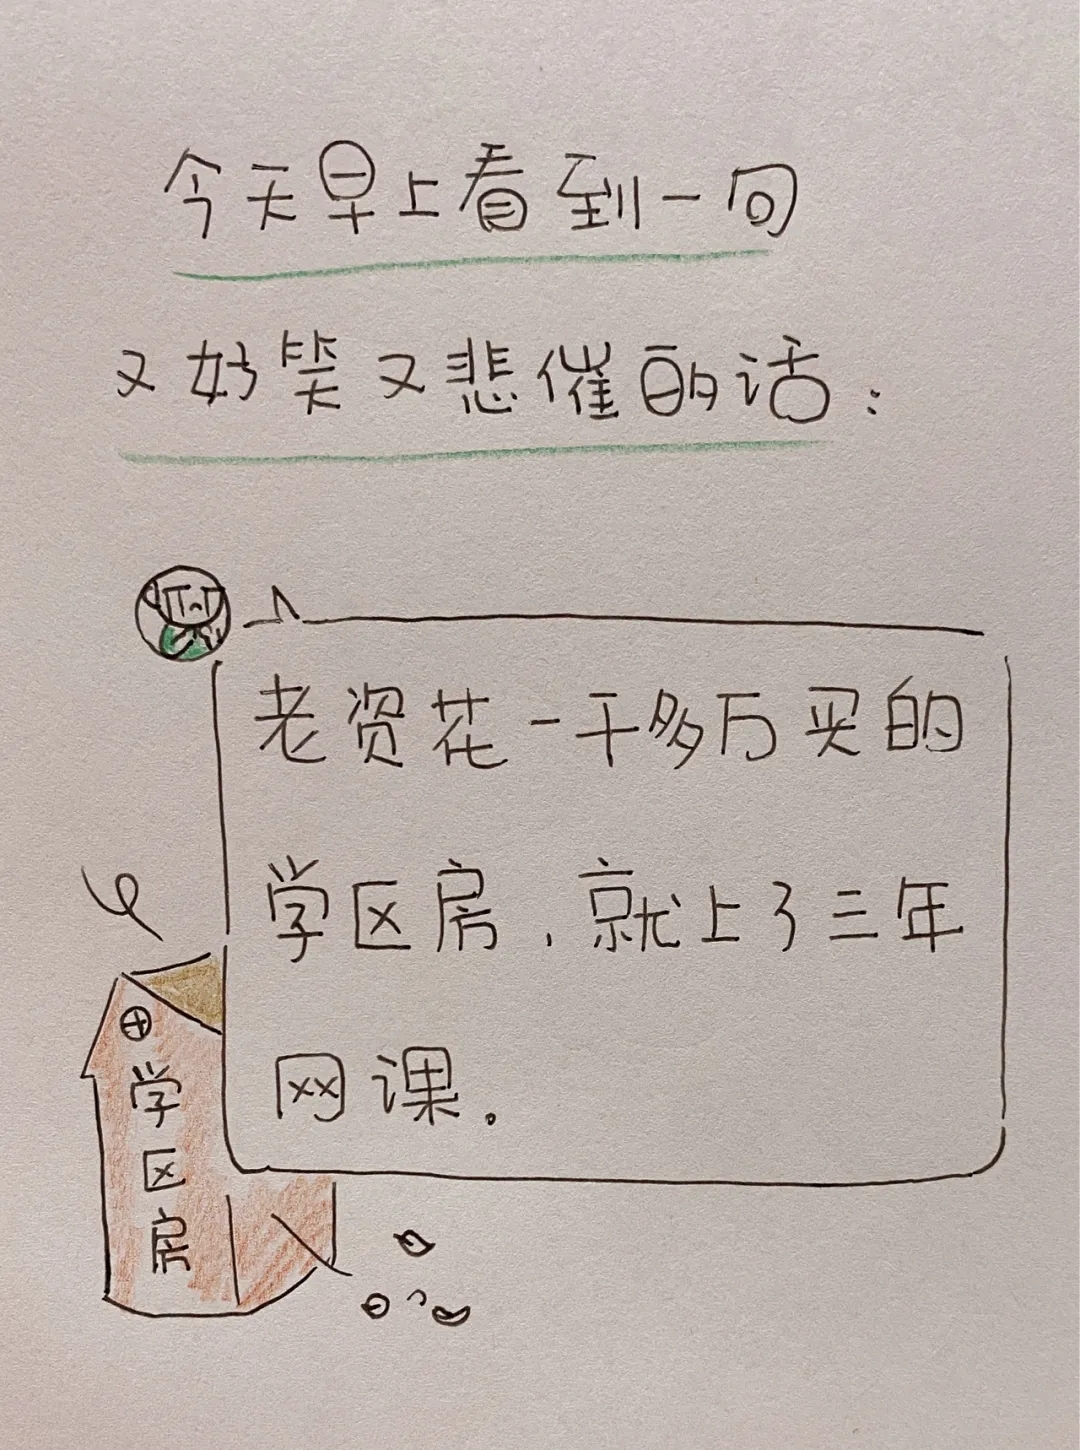 今天早上看到一句
又好笑又悲催的话：
老资花一千多万买的
学区房，就上了三年
网课。
学
区
房